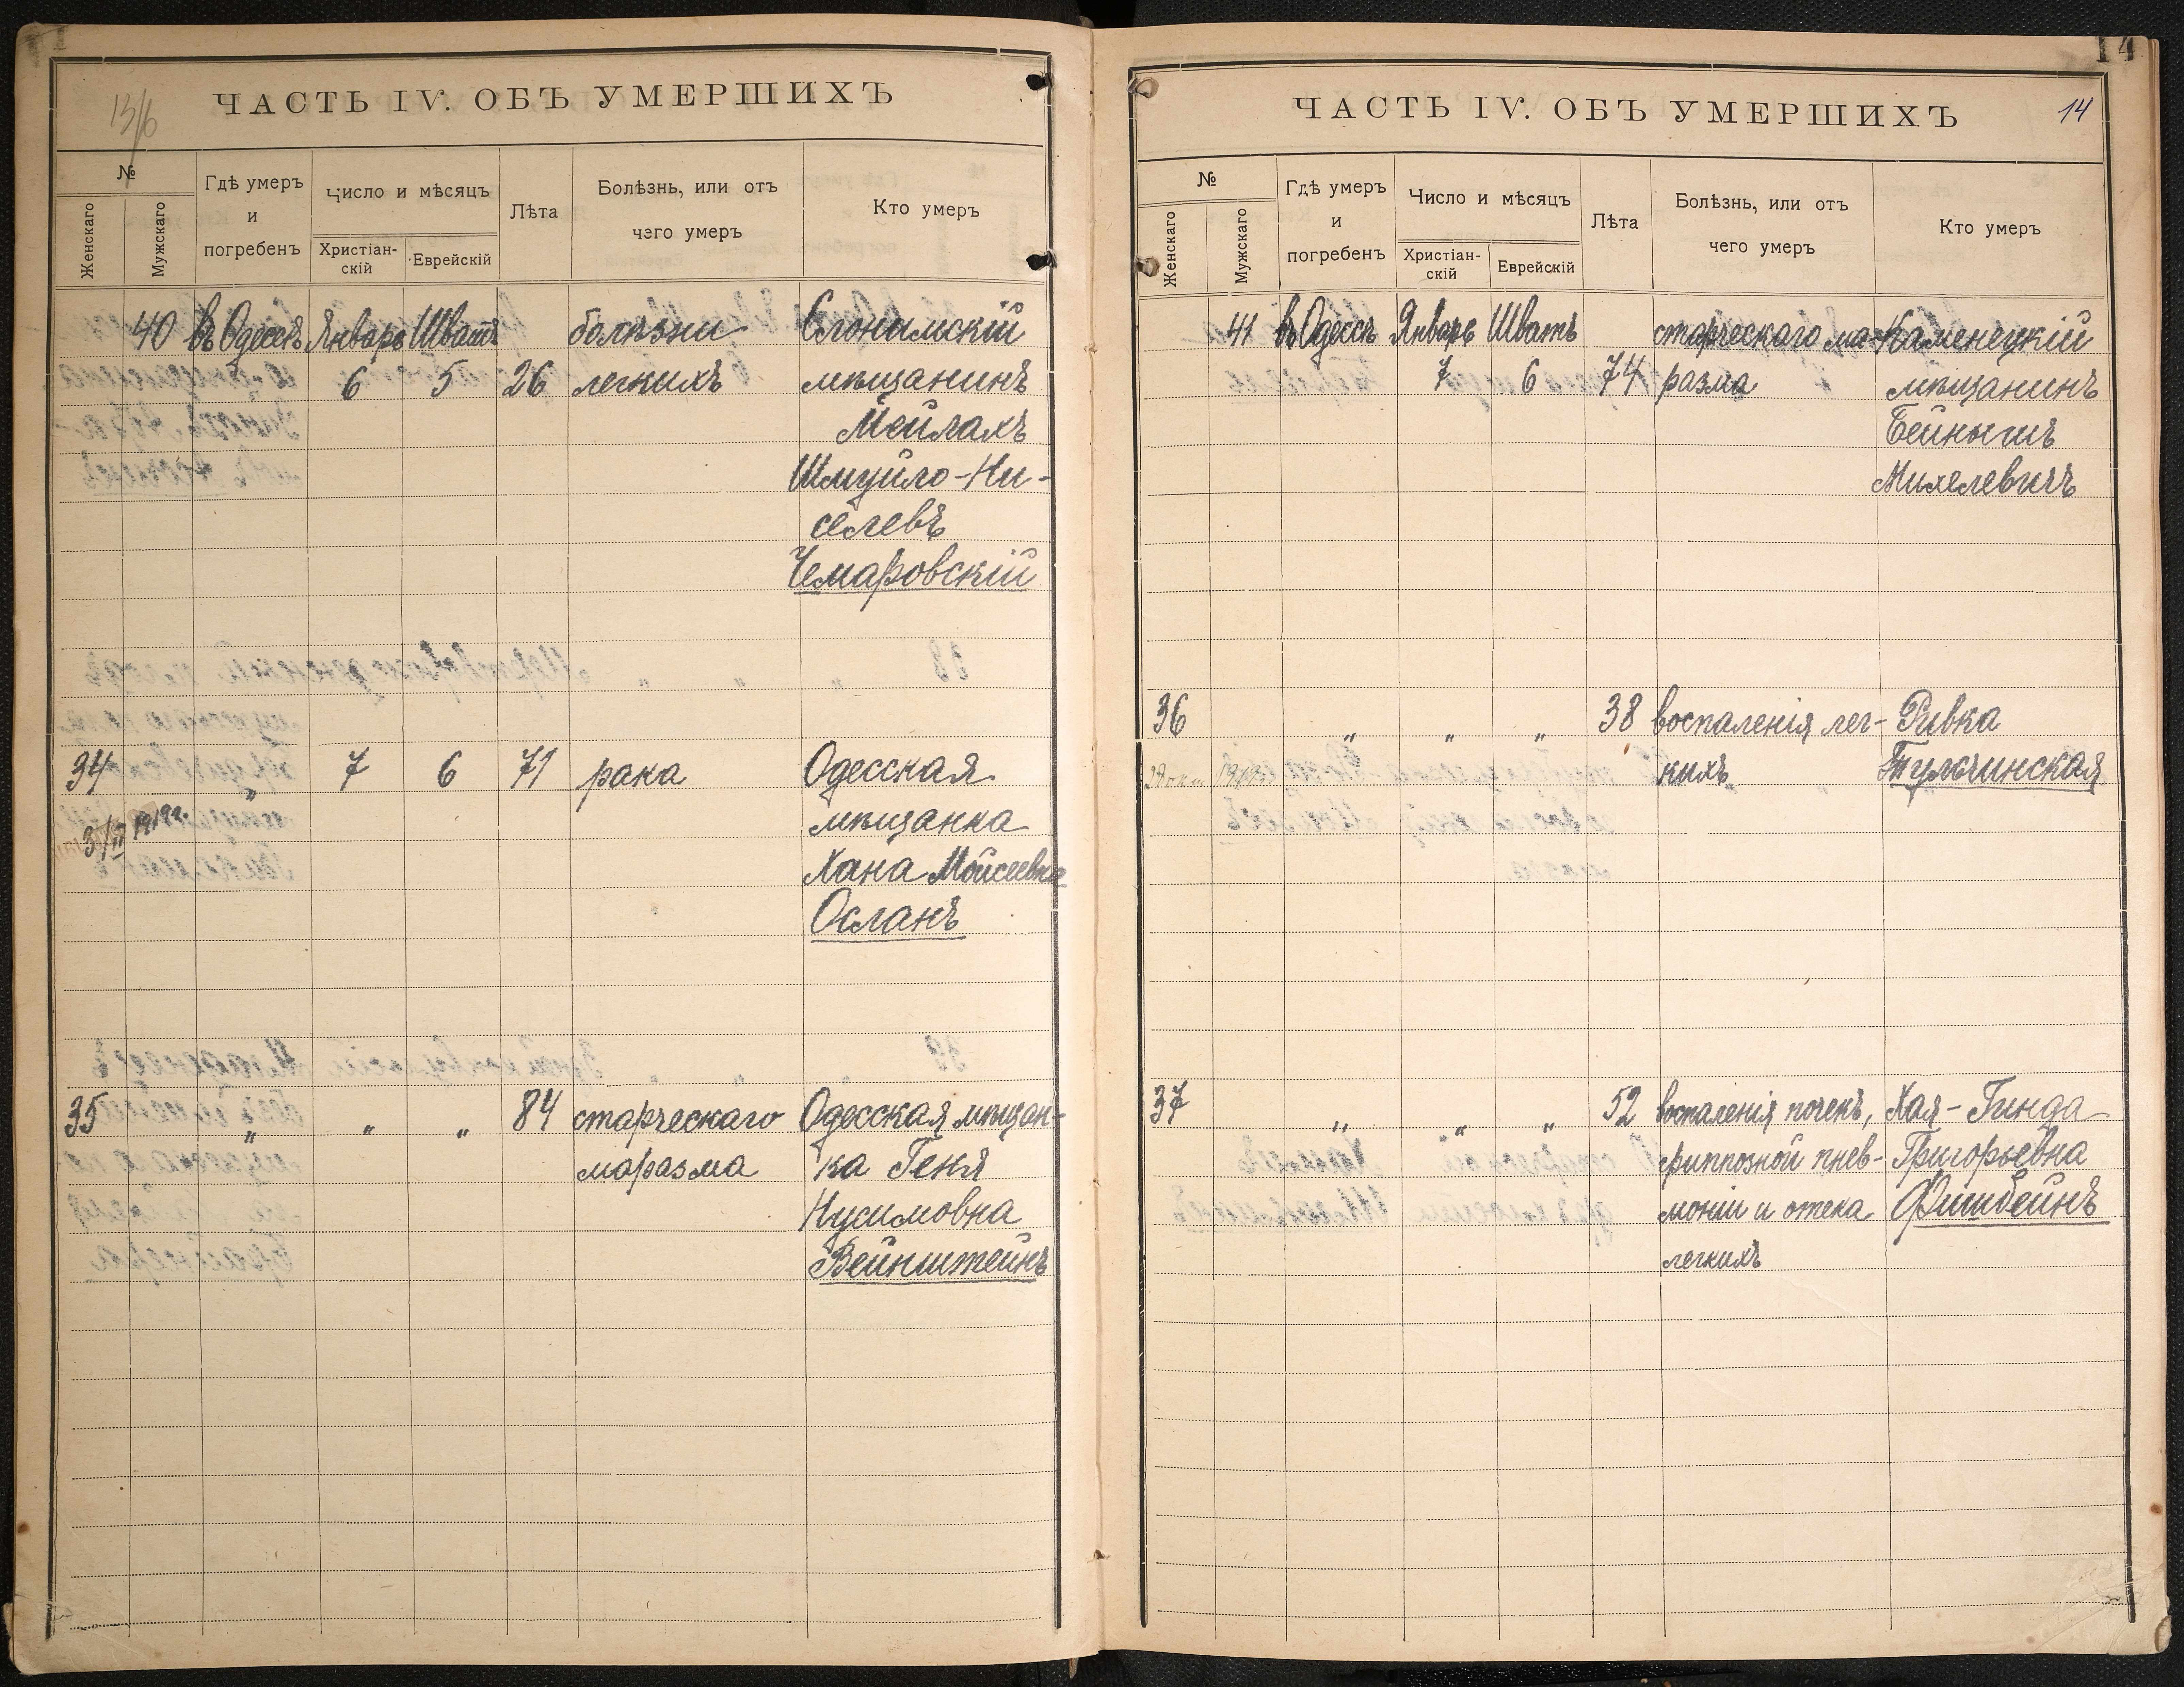 13/6
ЧАСТЬ IV. ОБЪ УМЕРШИХЪ
№
Женскаго
Мужскаго
Гдѣ умеръ
и
погребенъ
Число и мѣсяцъ
Христіан-
скій
Еврейскій
Лѣта
Болѣзнь, или отъ
чего умеръ
Кто умеръ
40 въ Одессѣ Январь Шватъ болѣзни Слонимскій
6 5 26 легкихъ мѣщанинъ
Мейлахъ
Шмуйло-Ки-
селевъ
Чемаровскій
34 " 7 6 71 рака Одесская
мѣщанка
3/II 1919г.
Хана Мойсеевна
Осланъ
35 " " " 84 старческаго Одесская мѣщан-
маразма ка Геня
Нусимовна
Вейнштейнъ
14
ЧАСТЬ IV. ОБЪ УМЕРШИХЪ
14
№
Женскаго
Мужскаго
Гдѣ умеръ
и
погребенъ
Число и мѣсяцъ
Христіан-
скій
Еврейскій
Лѣта
Болѣзнь, или отъ
чего умеръ
Кто умеръ
41 въ Одессѣ Январь Шватъ старческаго ма- Каменецкій
7 6 74 разма мѣщанинъ
Бейнышъ
Михелевичъ
36 " " " 38 воспаленія лег- Ривка
кихъ Тульчинская
37 " " " 52 воспаленія почекъ, Хая-Гинда
гриппозной пнев- Григорьевна
моніи и отека Фишбейнъ
легкихъ